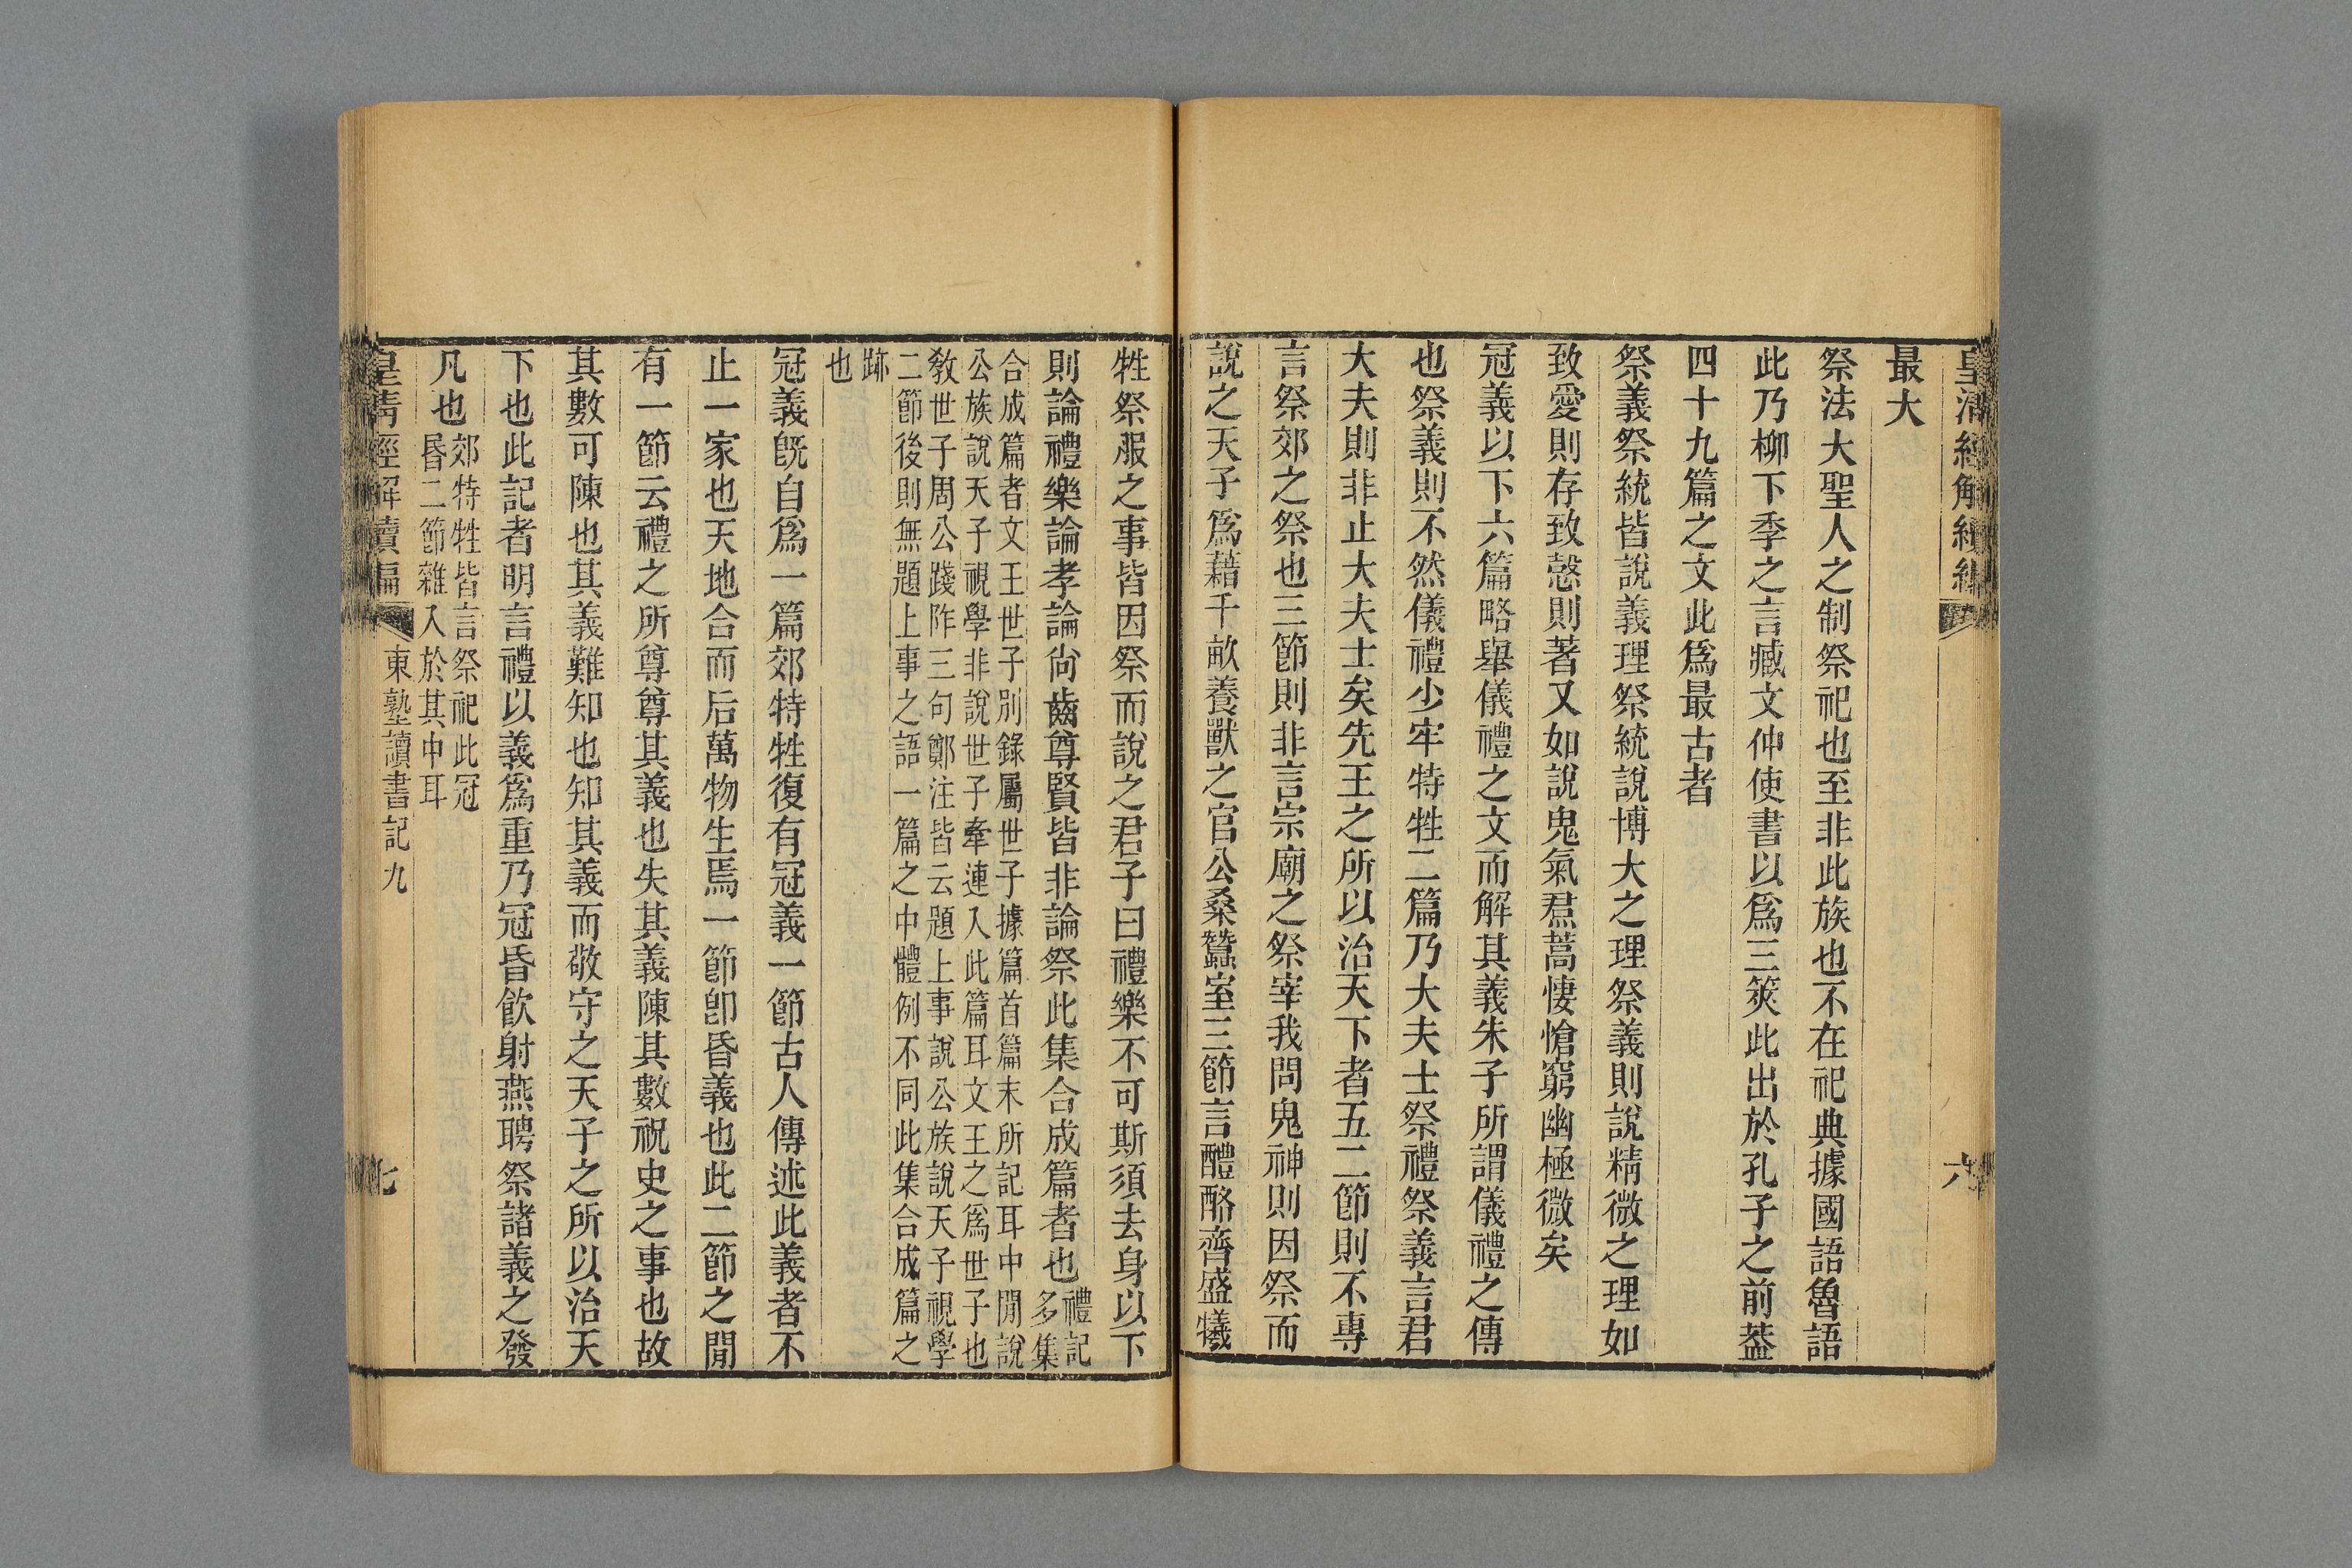 皇清經解續編
六
最大
祭法大聖人之制祭祀也至非此族也不在祀典據國語魯語
此乃柳下季之言臧文仲使書以爲三筴此出於孔子之前葢
四十九篇之文此爲最古者
祭義祭統皆說義理祭統說博大之理祭義則說精微之理如
致愛則存致慤則著又如說鬼氣焄蒿悽愴窮幽極微矣
冠義以下六篇略舉儀禮之文而解其義朱子所謂儀禮之傳
也祭義則不然儀禮少牢特牲二篇乃大夫士祭禮祭義言君
大夫則非止大夫士矣先王之所以治天下者五二節則不專
言祭郊之祭也三節則非言宗廟之祭宰我問鬼神則因祭而
說之天子爲藉千畝養獸之官公桑蠶室三節言醴酪齊盛犧
牲祭服之事皆因祭而說之君子曰禮樂不可斯須去身以下
則論禮樂論孝論尙齒尊賢皆非論祭此集合成篇者也禮記
多集
合成篇者文王世子別錄屬世子據篇首篇末所記耳中閒說
公族說天子視學非說世子牽連入此篇耳文王之爲世子也
敎世子周公踐阼三句鄭注皆云題上事說公族說天子視學
二節後則無題上事之語一篇之中體例不同此集合成篇之
跡
也
冠義旣自爲一篇郊特牲復有冠義一節古人傳述此義者不
止一家也天地合而后萬物生焉一節卽昏義也此二節之閒
有一節云禮之所尊尊其義也失其義陳其數祝史之事也故
其數可陳也其義難知也知其義而敬守之天子之所以治天
下也此記者明言禮以義爲重乃冠昏飮射燕聘祭諸義之發
凡也郊特牲皆言祭祀此冠
昏二節雜入於其中耳
皇清經解續編
東塾讀書記九
七